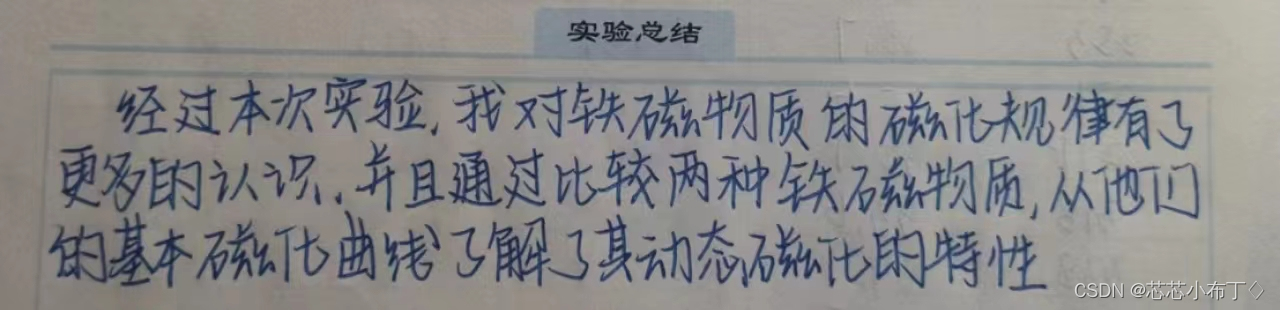 实验总结
经过本次实验,我对铁磁物质的磁化规律有了
更多的认识,并且通过比较两种铁磁物质,从他们
的基本磁化曲线了解了其动态磁化的特性
CSDN @芯芯小布丁◇